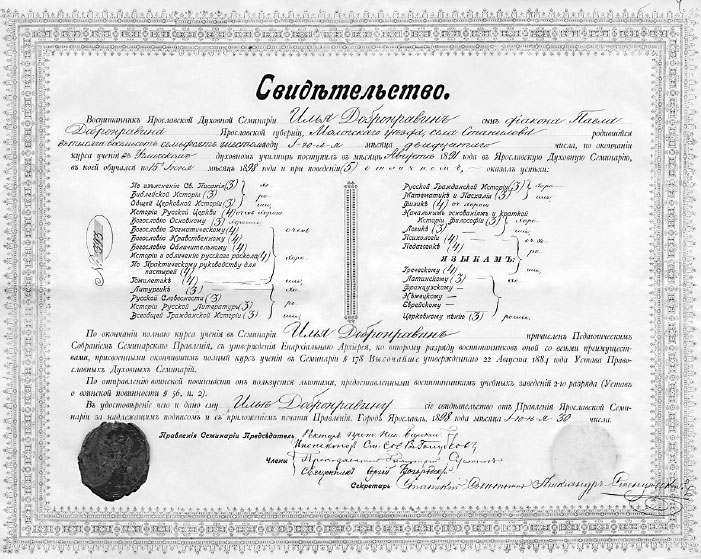 Свидѣтельство.
Воспитанникъ Ярославской Духовной Семинаріи Илья Добронравинъ сынъ діакона Павла
Добронравина Ярославской губерніи, Мологскаго уѣзда, села Станилова родившійся
въ тысяча восемьсотъ семьдесятъ шестомъ году І-ю-л-я мѣсяца двадцатаго числа, по окончаніи
курса ученія въ духовномъ училищѣ поступилъ въ мѣсяцѣ Августѣ 189 года въ Ярославскую Духовную Семинарію,
въ коей обучался по 15 Іюня мѣсяца 1898 года и при поведеніи (5) отличномъ, оказалъ успѣхи:
По изъясненію Св. Писанія (3)
Библейской Исторіи (3)
Общей Церковной Исторіи (3)
Исторіи Русской Церкви (4) очень хорошіе
Богословію Основному (3) хорошіе
Богословію Догматическому (4)
Богословію Нравственному (4)
Богословію Обличительному (4)
Исторіи и обличенію русскаго раскола (4)
По Практическому руководству для
пастырей (4)
Гомилетикѣ (4)
Литургикѣ (3)
Русской Словесности (3)
Исторіи Русской Литературы (3)
Всеобщей Гражданской Исторіи (3)
очень
хоро-
шіе.
хо-
ро-
шіе.
№
Русской Гражданской Исторіи (3)
Математикѣ и Пасхаліи (3)
Физикѣ (4) оч. хорош
Начальнымъ основаніямъ и краткой
Исторіи Философіи (3)
Логикѣ (3)
Психологіи (4)
Педагогикѣ (4)
ЯЗЫКАМЪ:
Греческому (4)
Латинскому (3)
Французскому —
Нѣмецкому —
Еврейскому —
Церковному пѣнію (3)
хоро-
шіе.
По окончаніи полнаго курса ученія въ Семинаріи Илья Добронравинъ причисленъ Педагогическимъ
Собраніемъ Семинарскаго Правленія, съ утвержденія Епархіальнаго Архіерея, ко второму разряду воспитанниковъ оной со всѣми преимущест-
вами, присвоенными окончившимъ полный курсъ ученія въ Семинаріи § 178 Высочайше утвержденнаго 22 Августа 1884 года Устава Право-
славныхъ Духовныхъ Семинарій.
По отправленію воинской повинности онъ пользуется льготами, предоставленными воспитанникамъ учебныхъ заведеній 2-го разряда (Уставъ
о воинской повинности § 56, п. 2).
Въ удостовѣреніе чего и дано ему Ильѣ Добронравину сіе свидѣтельство отъ Правленія Ярославской Семи-
наріи за надлежащимъ подписомъ и съ приложеніемъ печати Правленія. Городъ Ярославль, 1898 года мѣсяца І-ю-н-я 30 числа.
Правленія Семинаріи Предсѣдатель Ректоръ
Инспекторъ
Члены Преподаватель
Священникъ
Секретарь Александръ